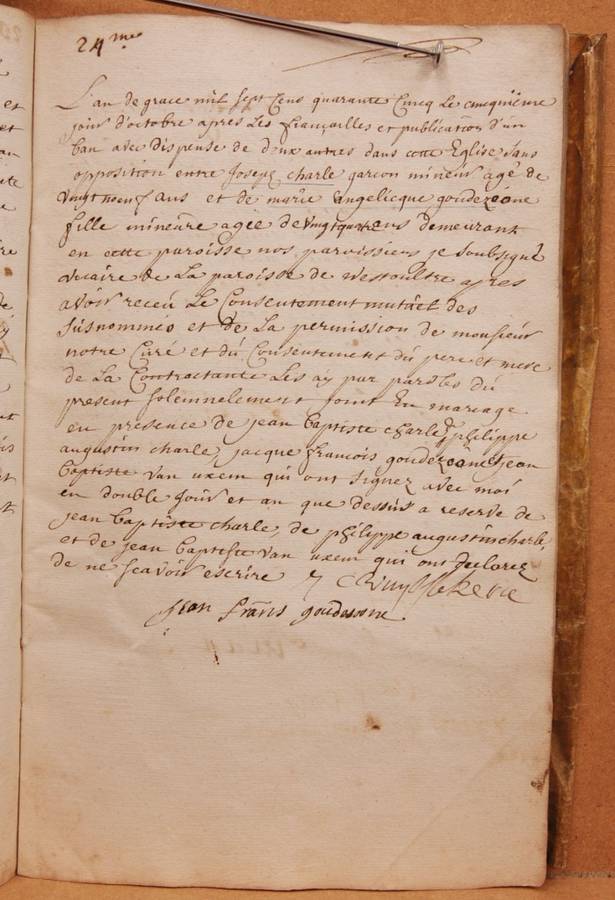 24 me
L'an de grace mil sept Cens quarante Cincq Le cincquième
jour d'octobre apres Les fiançailles et publication d'un
ban avec dispense de deux autres dans cette Eglise sans
opposition entre Joseph charle garcon mineur agé de
vingt noeuf ans et de marie angelicque goudezeone
fille mineure agée de vingt quatre ans demeurant
en cette paroisse nos paroissiens je soubsigné
vicaire de La paroisse de westoultre apres
avoir receu Le Consentement mutuel des
susnommes et de La permission de monsieur
notre Curé et du Consentement du pere et mere
de La Contractante Les ay par parolles du
present solemnelement joint En mariage
en presence de jean baptiste charle, philippe
augustin charle, jacque françois goudezeone et jean
baptiste van uxem qui ont signez avec moi
en double jour et an que dessus a reserve de
jean baptiste charle, de philippe augustin charle,
et de jean baptiste van uxem qui ont declarez
de ne scavoir escrire
jean frans goudesone